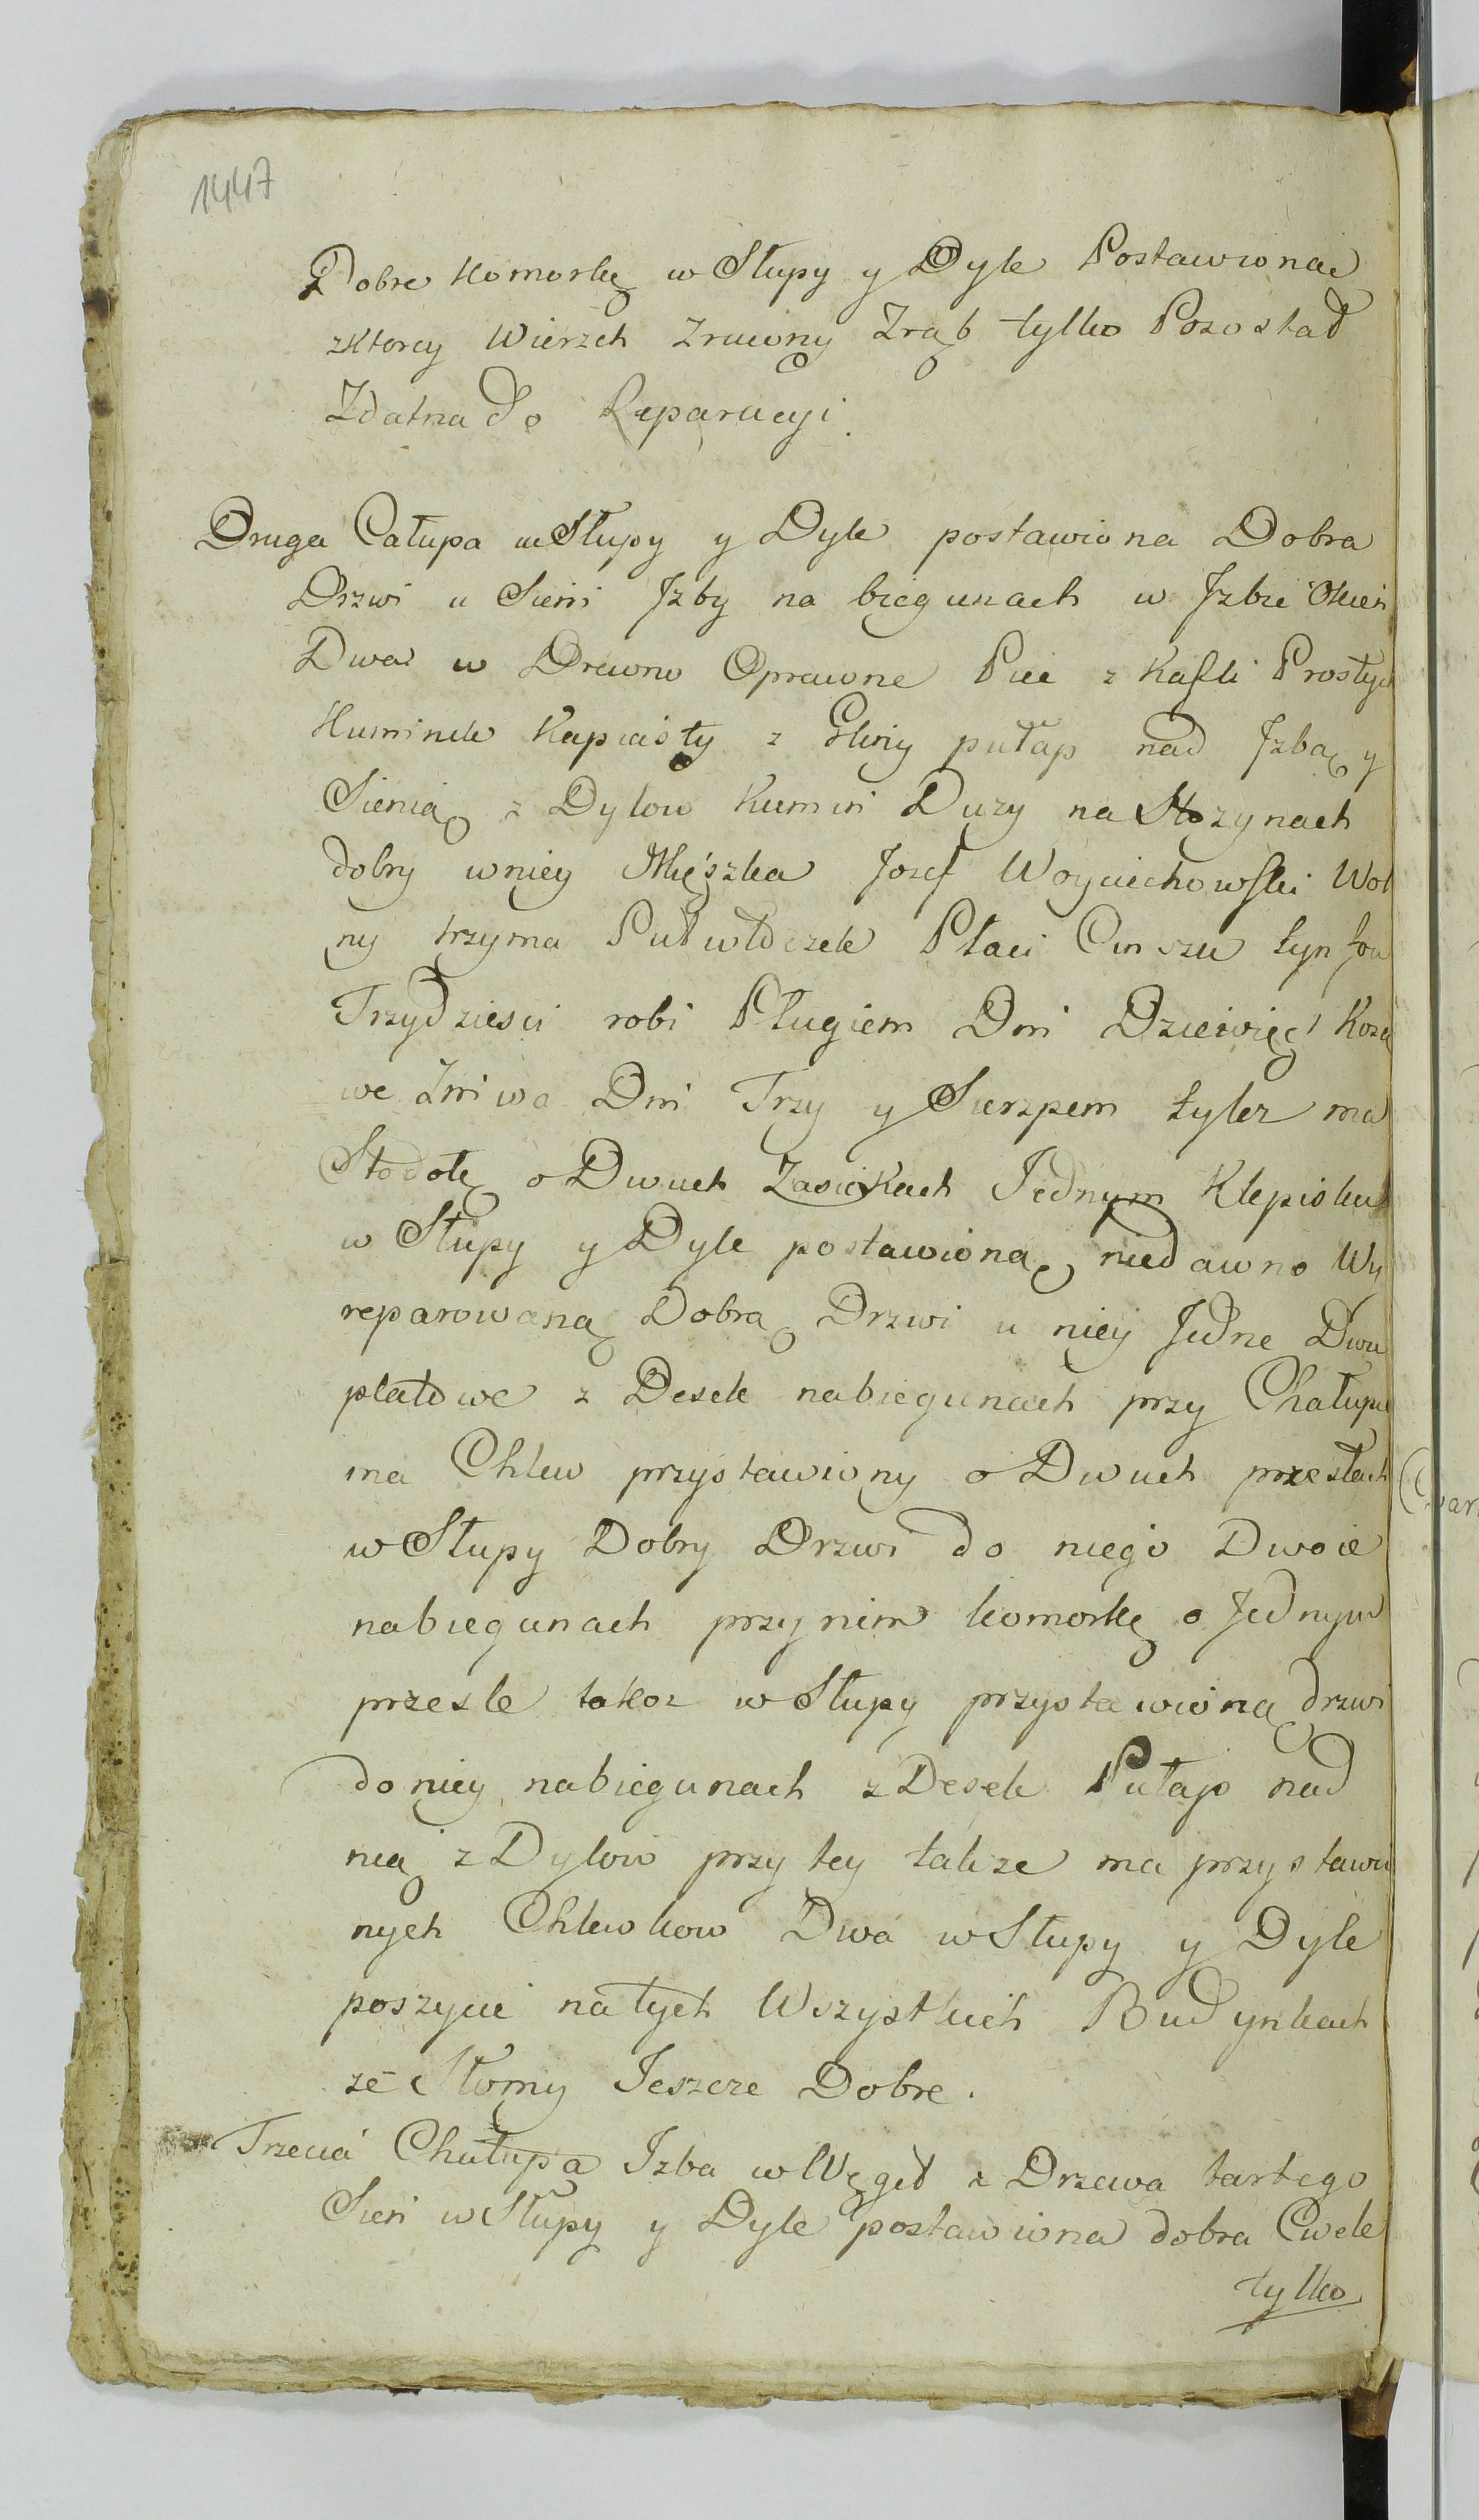 1447
Dobre Komorkę w Słupy y Dyle Postawioną
zktorey Wierzch Zrucony Zrąb tylko Pozostał
Zdatna do Reparacyi.
Druga Całupa w Słupy y Dyle postawiona Dobra
Drzwi u Sieni Jzby na biegunach w Jzbie Okien
Dwa w Drewno Oprawne Piec z Kafli Prostych
Kuminek Kapiasty z Gliny pułap nad Jzbą y
Sienią z Dylow Kumin Duzy na Stozynach
dobry wniey Mięszka Jozef Woyciechowski Wol
ny trzyma Puł włoczek Płaci Cinszu tynfow
Trzydziesci robi Pługiem Dni Dziewięć Kosą
we Zniwa Dni Trzy y Sierzpem tylez ma
Stodołę o Dwuch Zasiekach Jednym Klepisku
w Słupy y Dyle postawioną niedawno Wy
reparowaną Dobrą Drzwi u niey Jedne Dwu
płatowe z Desek nabiegunach przy Chałupie
ma Chlew przystawiony o Dwuch przesłach
w Słupy Dobry Drzwi do niego Dwoie
nabiegunach przynim komorkę o Jednym
przesle takoz w Słupy przystawioną drzwi
do niey nabiegunach z Desek Pułap nad
nią z Dylow przy tey takze ma przystawio
nych Chlewkow Dwa w Słupy y Dyle
poszycie natych Wszystkich Budynkach
ze Słomy Jeszcze Dobre.
Trzecia Chałupa Izba w Węgieł z Drzewa tartego
Sień w Słupy y Dyle postawiona dobra Cwele
tylko